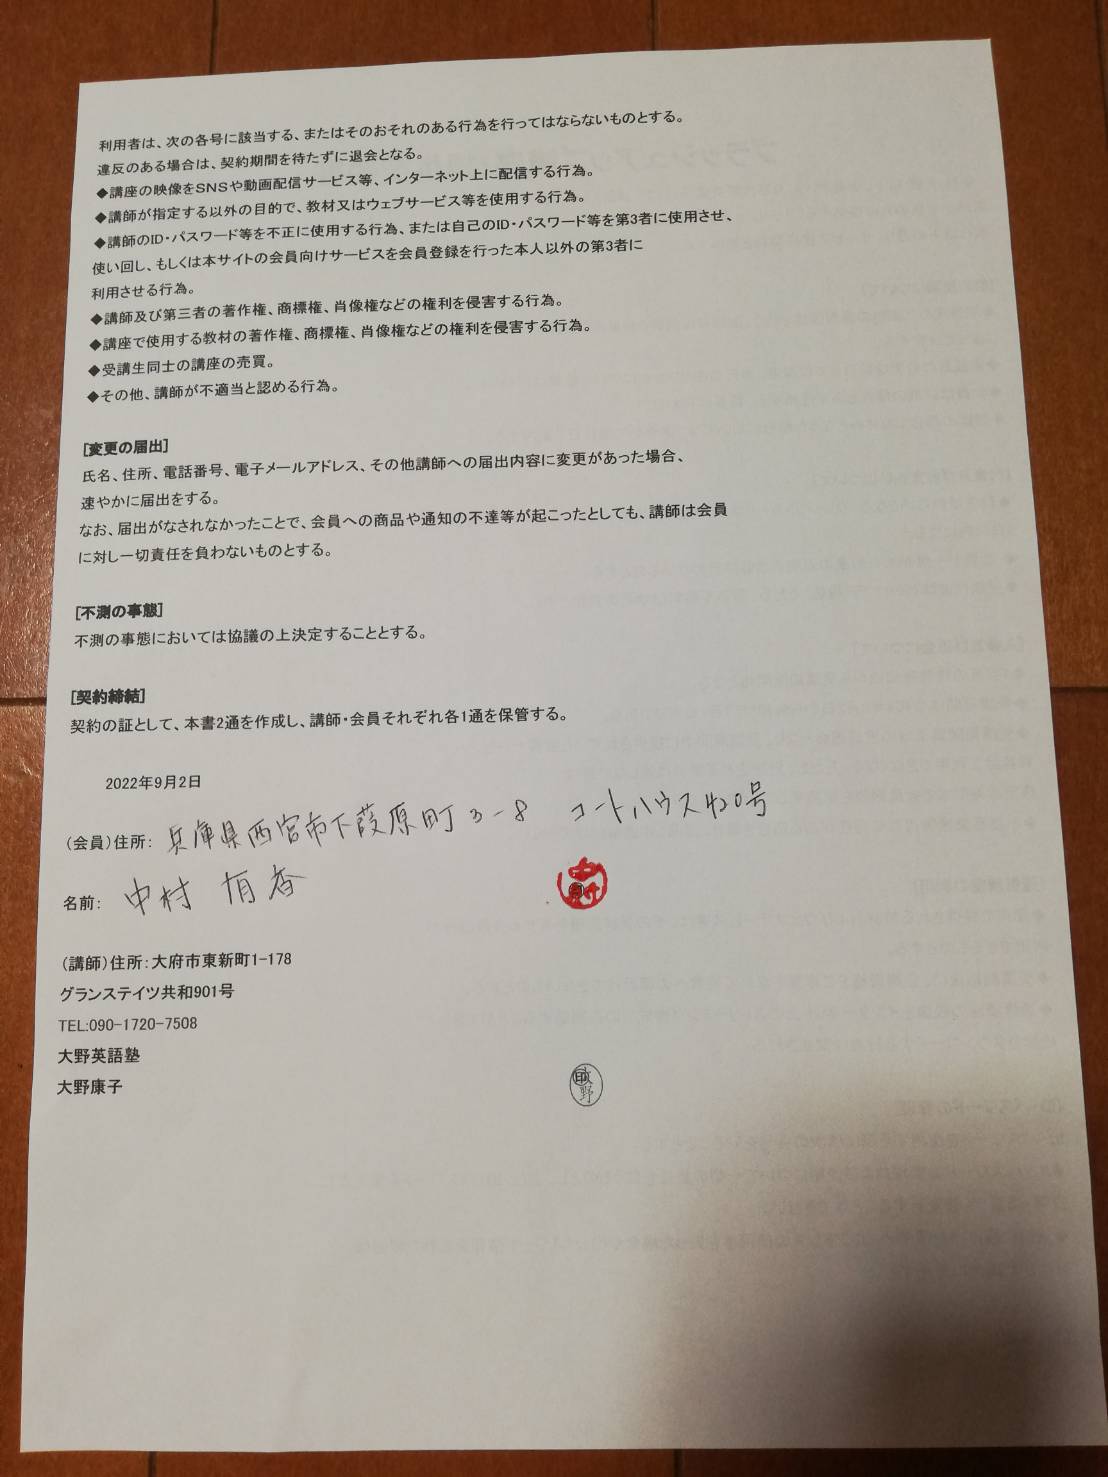 利用者は、次の各号に該当する、またはそのおそれのある行為を行ってはならないものとする。
違反のある場合は、契約期間を待たずに退会となる。
◆講座の映像をSNSや動画配信サービス等、インターネット上に配信する行為。
◆講師が指定する以外の目的で、教材又はウェブサービス等を使用する行為。
◆講師のID・パスワード等を不正に使用する行為、または自己のID・パスワード等を第3者に使用させ、
使い回し、もしくは本サイトの会員向けサービスを会員登録を行った本人以外の第3者に
利用させる行為。
◆講師及び第三者の著作権、商標権、肖像権などの権利を侵害する行為。
◆講座で使用する教材の著作権、商標権、肖像権などの権利を侵害する行為。
◆受講生同士の講座の売買。
◆その他、講師が不適当と認める行為。
[変更の届出]
氏名、住所、電話番号、電子メールアドレス、その他講師への届出内容に変更があった場合、
速やかに届出をする。
なお、届出がなされなかったことで、会員への商品や通知の不達等が起こったとしても、講師は会員
に対し一切責任を負わないものとする。
[不測の事態]
不測の事態においては協議の上決定することとする。
[契約締結]
契約の証として、本書2通を作成し、講師・会員それぞれ各1通を保管する。
2022年9月2日
(会員)住所: 兵庫県西宮市下葭原町3-8 コートハウス420号
名前: 中村 有香
中村
(講師)住所:大府市東新町1-178
グランステイツ共和901号
TEL:090-1720-7508
大野英語塾
大野康子
印